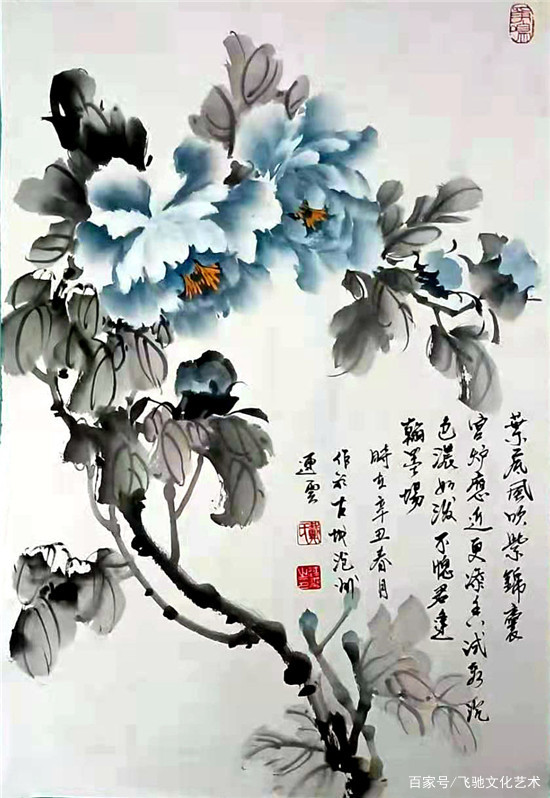 葉底風吹紫錦囊
宮炉應近更添香試看沉
色濃如潑不愧君
翰墨場
時在辛丑春月
作於古城滄州
連雲
百家号/飞驰文化艺术